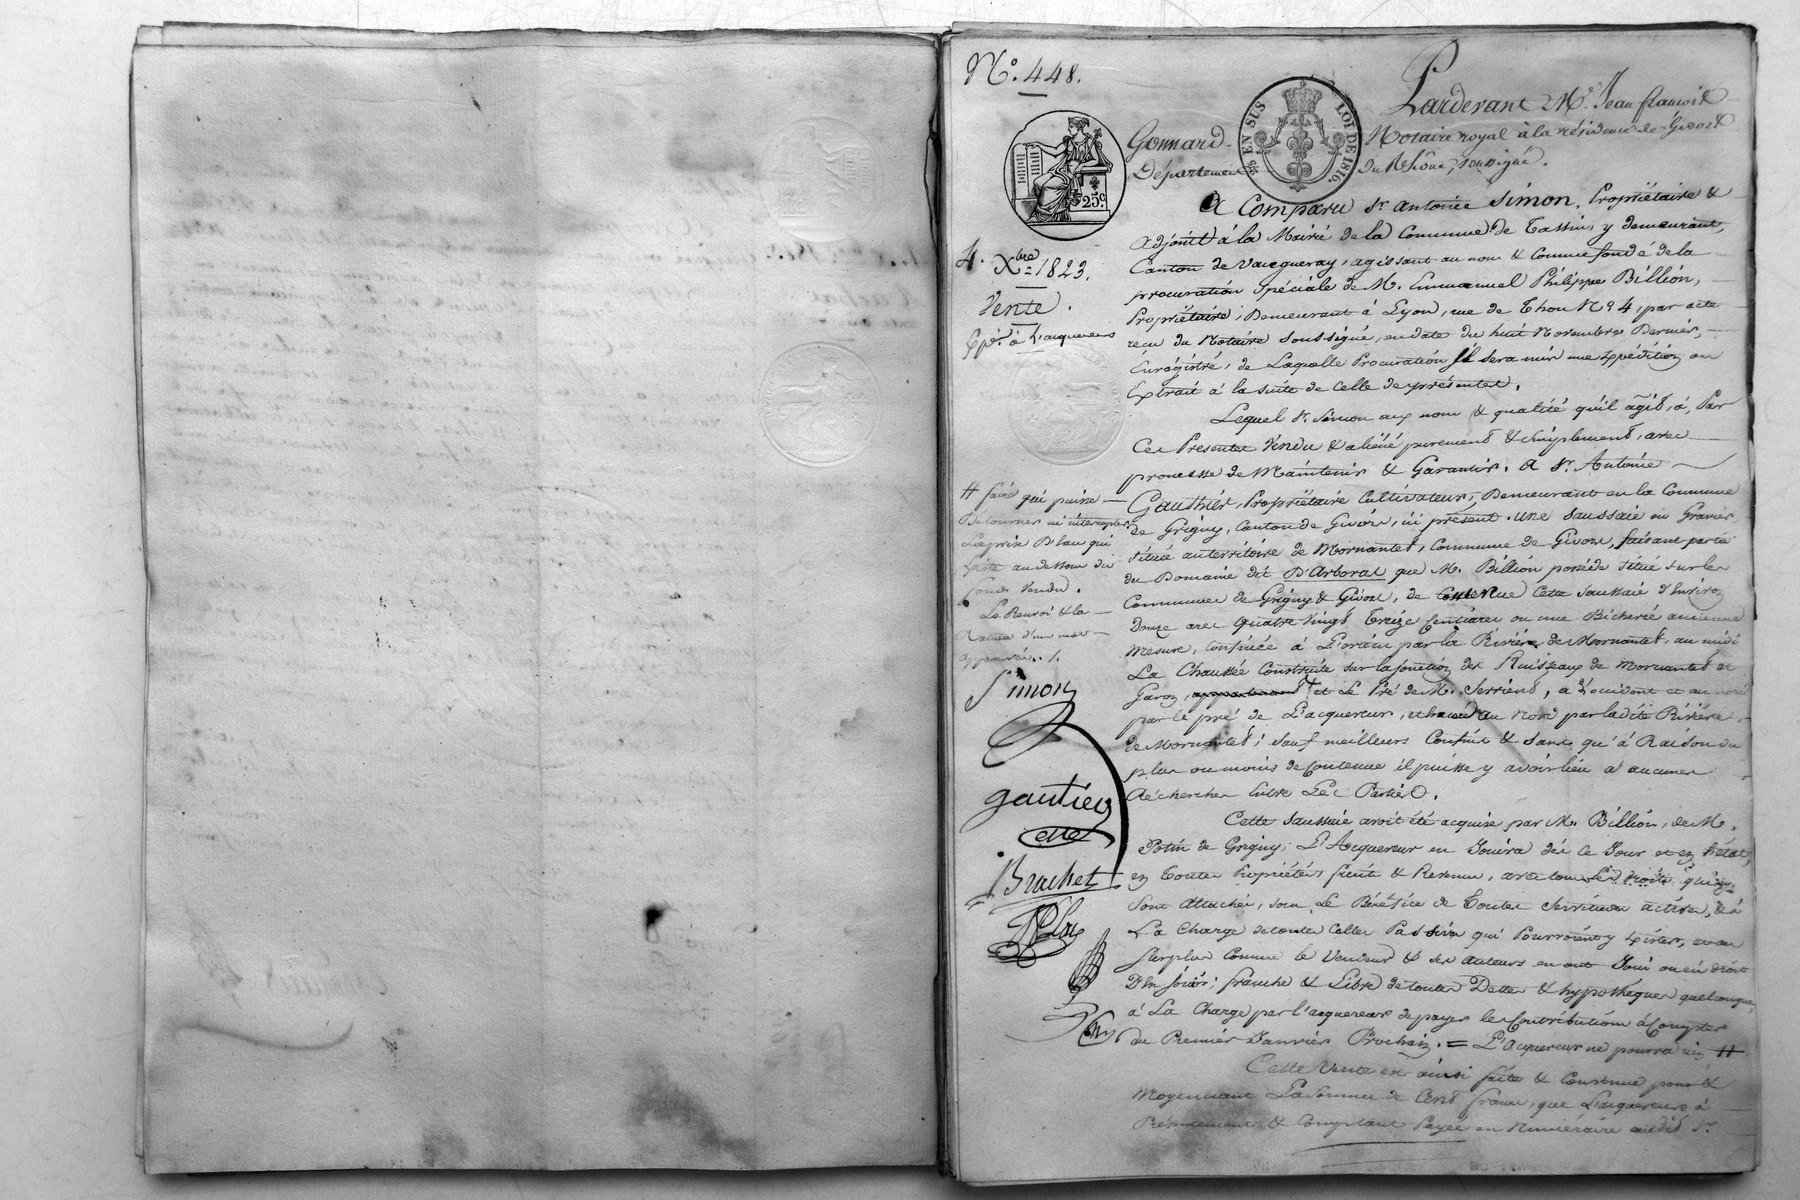 N.º 448.
25.c
EN SUS
LOI DE 1816.
4. Xbre 1823.
Vente.
Expon. à L'acquereur
Pardevant Me. Jean françois
Gonnard Notaire royal à la résidence de Givors
Département du Rhône, soussigné.
A Comparu Sr. antoine Simon, Propriétaire &
adjoint à la Mairie de la Commune de Tassin, y demeurant,
Canton de Vaugneray, agissant au nom & comme fondé de la
procuration Spéciale de M. Emmanuel Philippe Billion,
Propriétaire, Demeurant à Lyon, rue de Thou No. 4, par acte
recu du Notaire soussigné, en date du huit Novembre Dernier,
Enrégistré, de Laquelle Procuration Il sera mis une Expédition ou
Extrait à la suite de Celle des présentes.
Lequel Sr. Simon aux nom & qualité qu'il agit, à, Par
Ces Presentes Vendu & aliéné purement & simplement, avec
promesse de Maintenir & Garantir. A Sr. Antoine
Gauthier, Propriétaire Cultivateur, Demeurant en la Commune
de Grigny, Canton de Givors, ici présent. une Saussaie ou Gravier,
Située au territoire de Mornantet, Commune de Givors, faisant partie
du Domaine dit D'Arboras que M. Billion posséde Situé sur les
Communes de Grigny & Givors, de Contenue Cette saussaie d'Environ
Douze ares Quatre Vingt Treize Centiares ou une Bicherée ancienne
Mesure, Confinée à L'orient par la Rivière de Mornantet, au midi
La Chaussée Construite sur la jonction des Ruisseaux de Mornantet et
Garon, appartenant et Le Pré de M. Serriens, a L'occident et au nord
par le pré de L'acquereur, et au Nord par la dite Rivière
de Mornantet; Sauf meilleurs Confins & sans qu'à Raison du
plus ou moins de Contenue il puisse y avoir lieu à aucunes
Réchercher Entre Les Parties.
Cette saussaie avoit été acquise par M. Billion, de M.
Potin de Grigny; L'Acquereur en Jouira dès ce Jour et en l'état,
en Toutes Propriétés, fruits & Revenus, avec tous Les droits qui y
sont attachés, sous Le Bénéfice de Toutes Servitudes actives, & à
La Charge de toutes Celles Passives qui Pourroient y Exister, et au
surplus Comme le Vendeur & ses auteurs en ont Joui ou eu droit
D'en Jouir; franche & Libre de toutes Dettes & hypothèques quelconques,
à La Charge par l'acquereur de payer les Contributions à Compter
du Premier Janvier Prochain. = L'acquereur ne pourra rien #
Cette Vente est ainsi faite & Convenue pour &
Moyennant La somme de Cent francs, que L'acquereur à
Présentement & Comptant Payée en Numéraire audit Sr.
# faire qui puisse
Détourner ni intercepter
La prise D'eau qui
Existe au dessous du
fonds Vendu.
Le Renvoi & la
Rature d'un mot
approuvés./.
Simon
gautier
Brachet